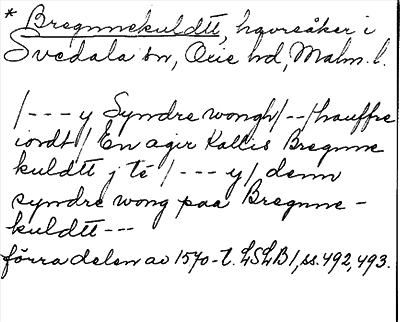 * Bregnnekuldtt, havsåker i
Svedala sn, Oxie hd, Malm. l.
/--- y Syndre wongh/--/hauffre
iordt/ En ager Kallis Bregnne
kuldtt j té /--- y/ denn
syndre wong paa Bregnne-
kuldtt---
förra delen av 1570-t. LSLB 1, ss. 492, 493.